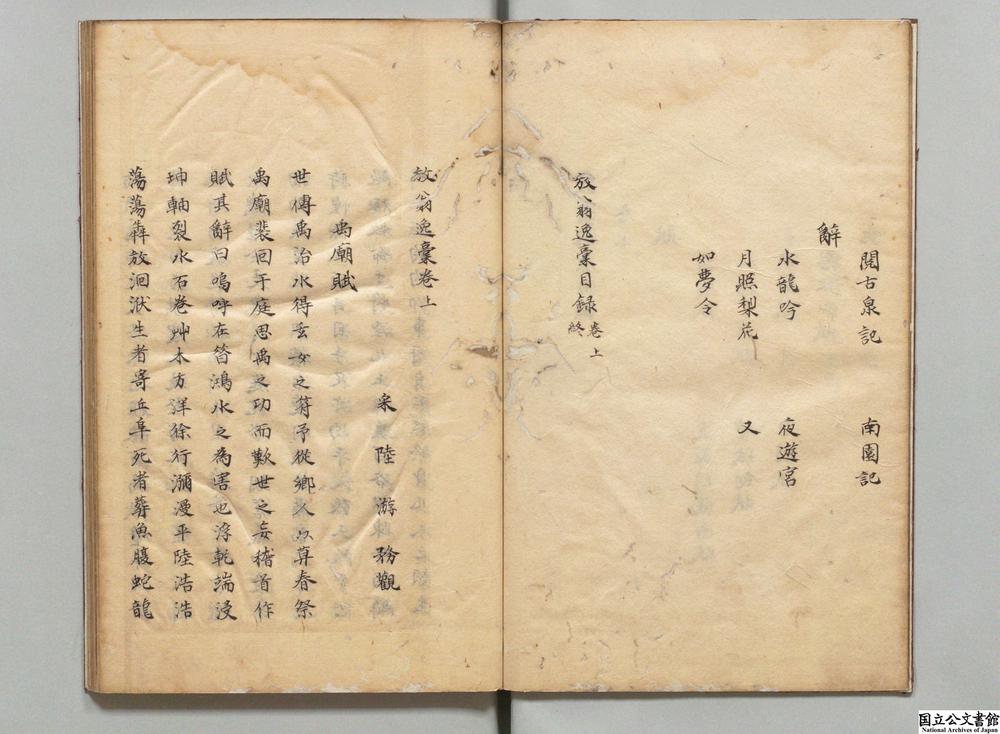 閲古泉記　南園記
辭
水龍吟　夜遊宮
月照梨花　又
如夢令
放翁逸稾目録卷上終
放翁逸稾卷上
宋陸游務觀
禹廟賦
世傳禹治水得玄女之符予從鄉人以暮春祭
禹廟裴回于庭思禹之功而歎世之妄稽首作
賦其辭曰嗚呼在昔鴻水之為害也浮乾端浸
坤軸裂水石卷艸木方洋徐行瀰漫平陸浩浩
蕩蕩犇放洄洑生者寄丘阜死者葬魚腹蛇龍
国立公文書館
National Archives of Japan